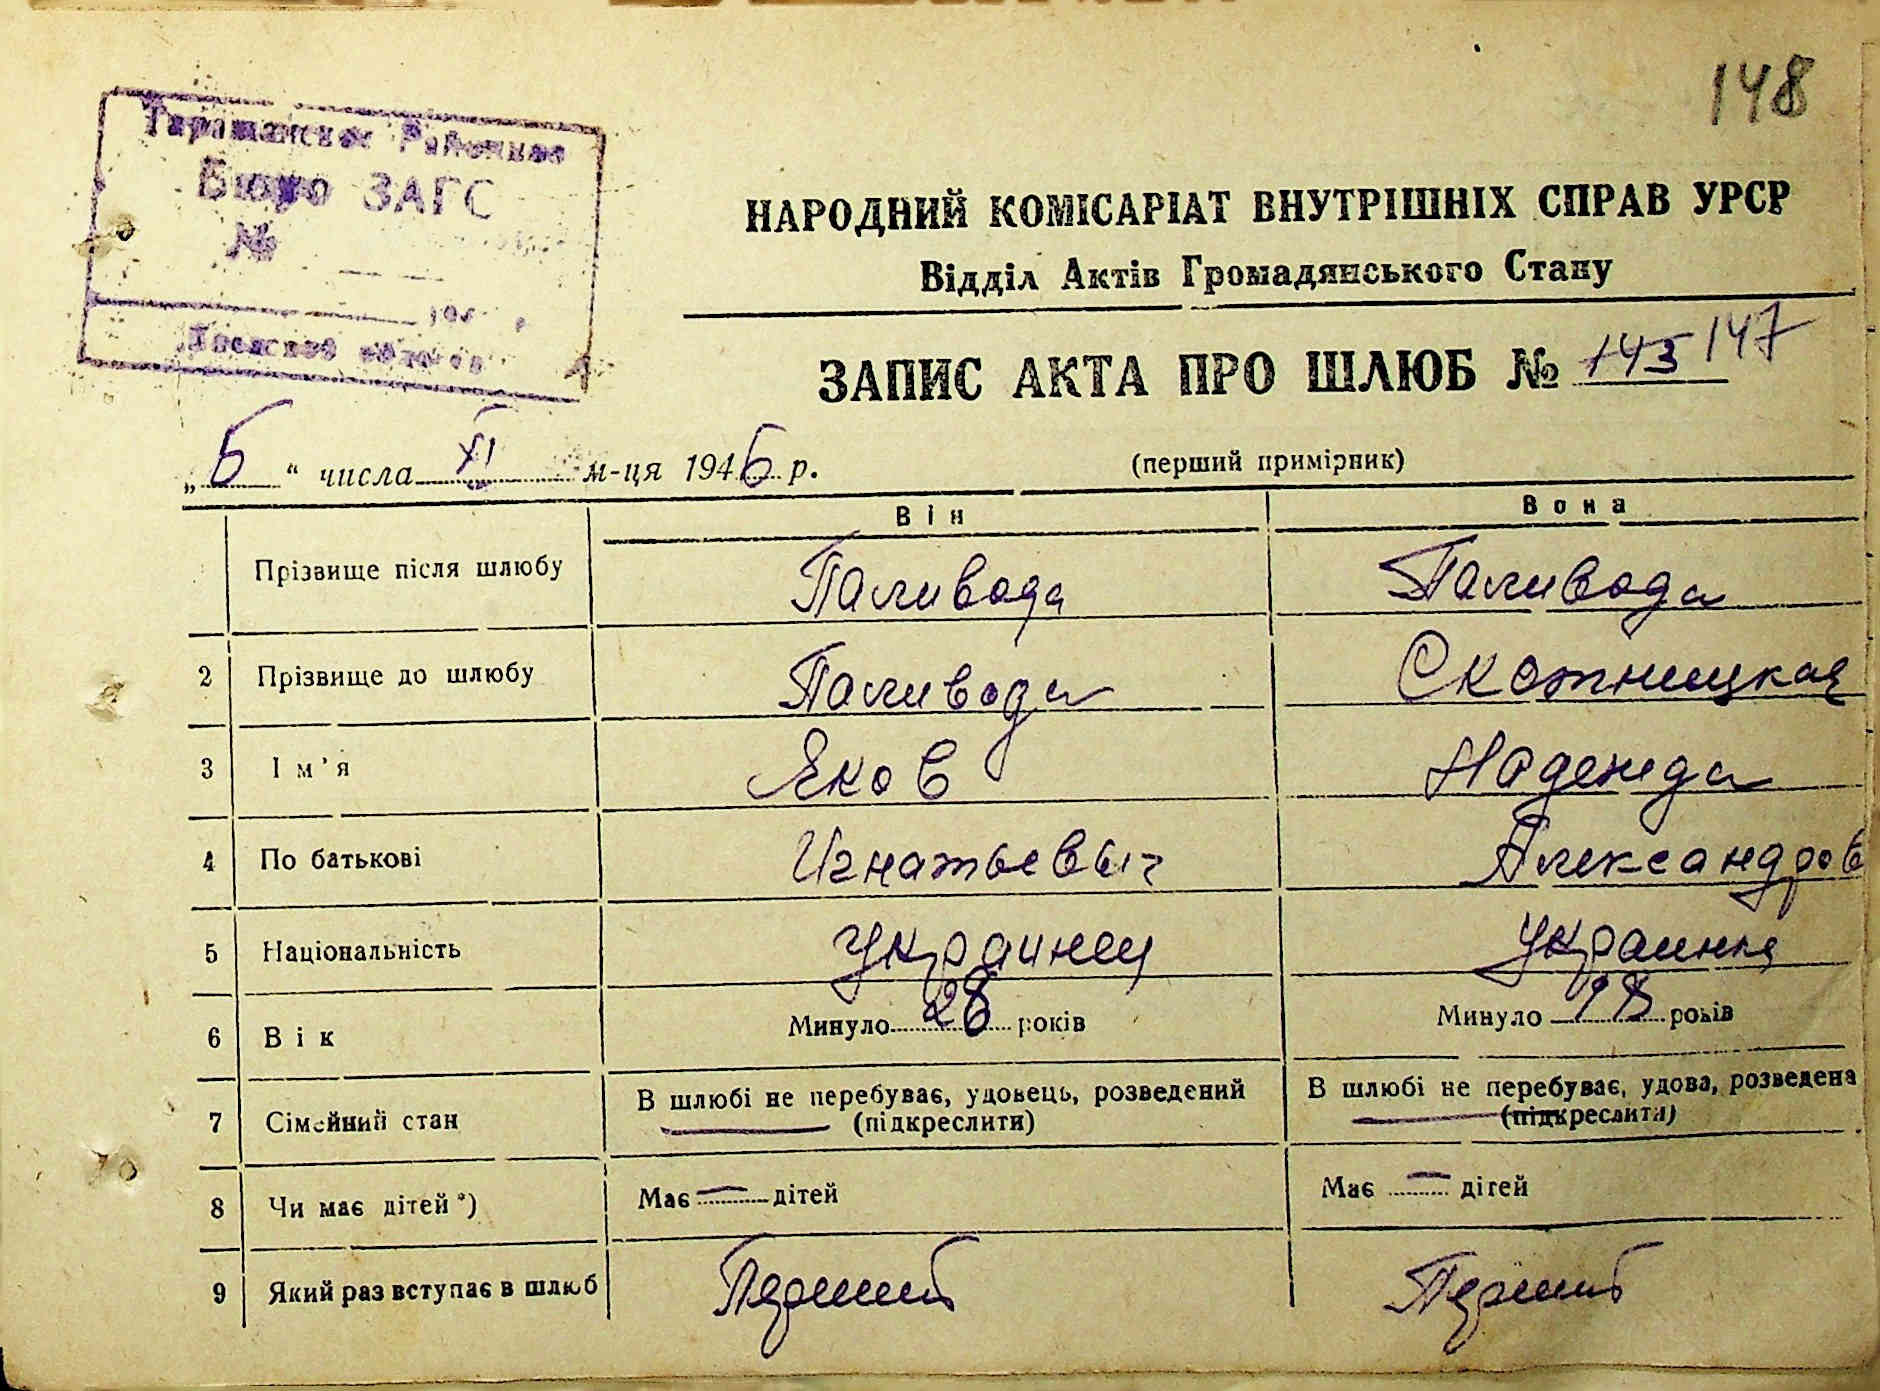 148
Таращанское Районное
Бюро ЗАГС
№
НАРОДНИЙ КОМІСАРІАТ ВНУТРІШНІХ СПРАВ УРСР
Відділ Актів Громадянського Стану
ЗАПИС АКТА ПРО ШЛЮБ № 145 147
„6“ числа XI м-ця 1946 р.
(перший примірник)
Він Вона
Прізвище після шлюбу Паливода Паливода
2 Прізвище до шлюбу Паливода Скотницкая
3 Ім'я Яков Надежда
4 По батькові Игнатьевыч Александров
5 Національність Украинец Украинка
6 Вік Минуло 28 років Минуло 18 років
7 Сімейний стан В шлюбі не перебуває, удовець, розведений (підкреслити) В шлюбі не перебуває, удова, розведена (підкреслити)
8 Чи має дітей *) Має — дітей Має — дітей
9 Який раз вступає в шлюб Перший Перший